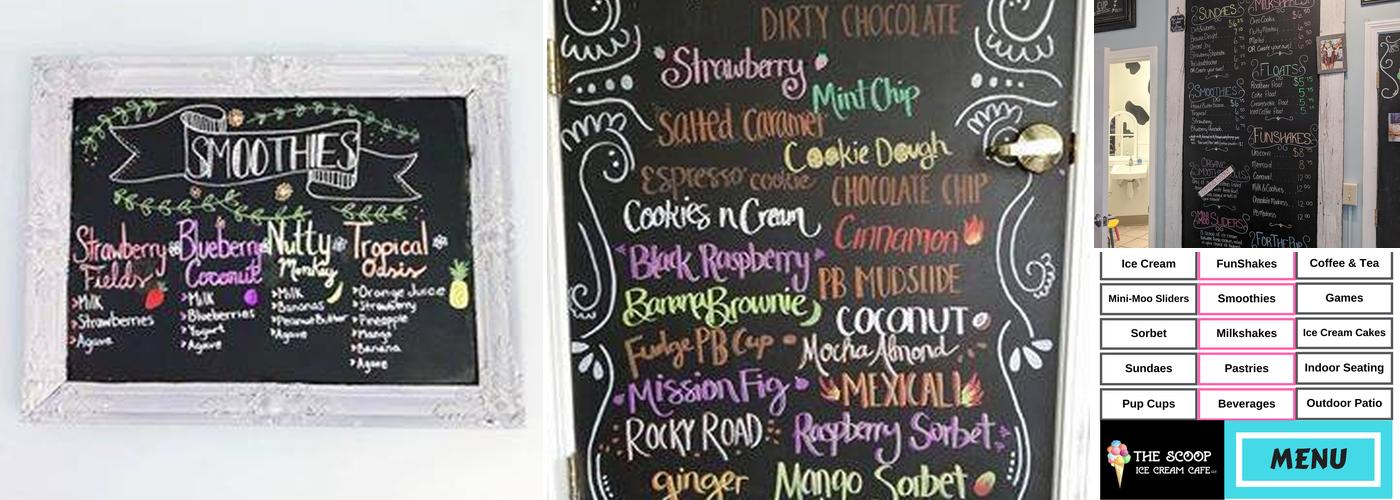 SMOOTHIES
Strawberry Fields
>Milk
>Strawberries
>Agave
Blueberry Coconut
>Milk
>Blueberries
>Yogurt
>Agave
Nutty Monkey
>Milk
>Bananas
>Peanut Butter
>Agave
Tropical Oasis
>Orange Juice
>Strawberry
>Pineapple
>Mango
>Banana
>Agave
DIRTY CHOCOLATE
Strawberry
Mint Chip
Salted Caramel
Cookie Dough
Espresso cookie
CHOCOLATE CHIP
Cookies n Cream
Cinnamon
Black Raspberry
PB MUDSLIDE
Banana Brownie
COCONUT
Fudge PB Cup
Mocha Almond
Mission Fig
MEXICALI
ROCKY ROAD
Raspberry Sorbet
ginger
Mango Sorbet
SUNDAES
MILKSHAKES
OR Create your own!
FLOATS
SMOOTHIES
FUNSHAKES
Unicorn
Mermaid
Carnival
Milk & Cookies
Chocolate Madness
PB Madness
ORGANIC
MINI SLIDERS
FOR THE PUP
Ice Cream FunShakes Coffee & Tea
Mini-Moo Sliders Smoothies Games
Sorbet Milkshakes Ice Cream Cakes
Sundaes Pastries Indoor Seating
Pup Cups Beverages Outdoor Patio
THE SCOOP
ICE CREAM CAFE
MENU